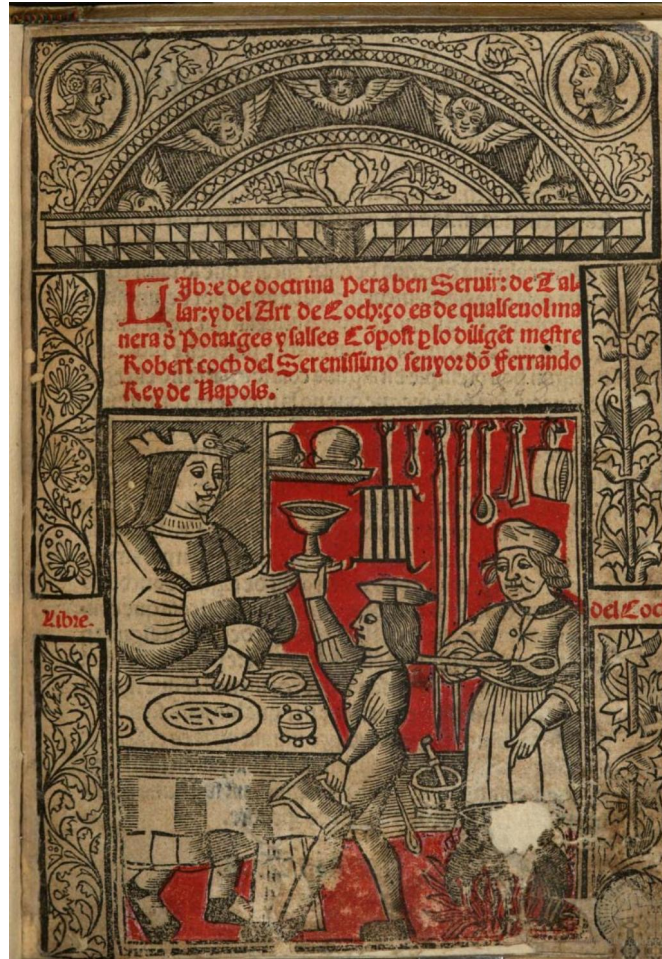 LJbre de doctrina Pera ben Seruir: de Tal
lar: y del Art de Coch: ço es de qualseuol ma
nera d̄ Potatges y salses Cōpost ꝑ lo diligēt mestre
Robert coch del Serenissimo senyor dō Ferrando
Rey de Napols.
Libre.
del Coc